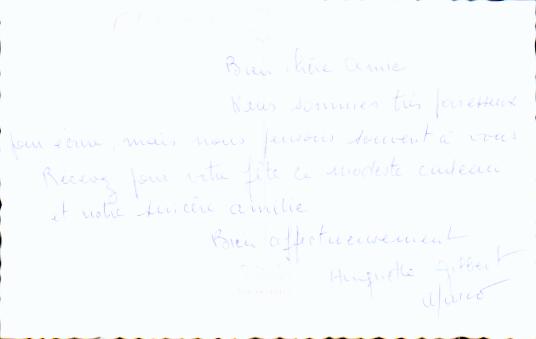 Bien chère Amie
Nous sommes très paresseux
pour écrire, mais nous pensons souvent à vous
Recevez pour votre fête ce modeste cadeau
et notre sincère amitié
Bien affectueusement
Huguette Gilbert